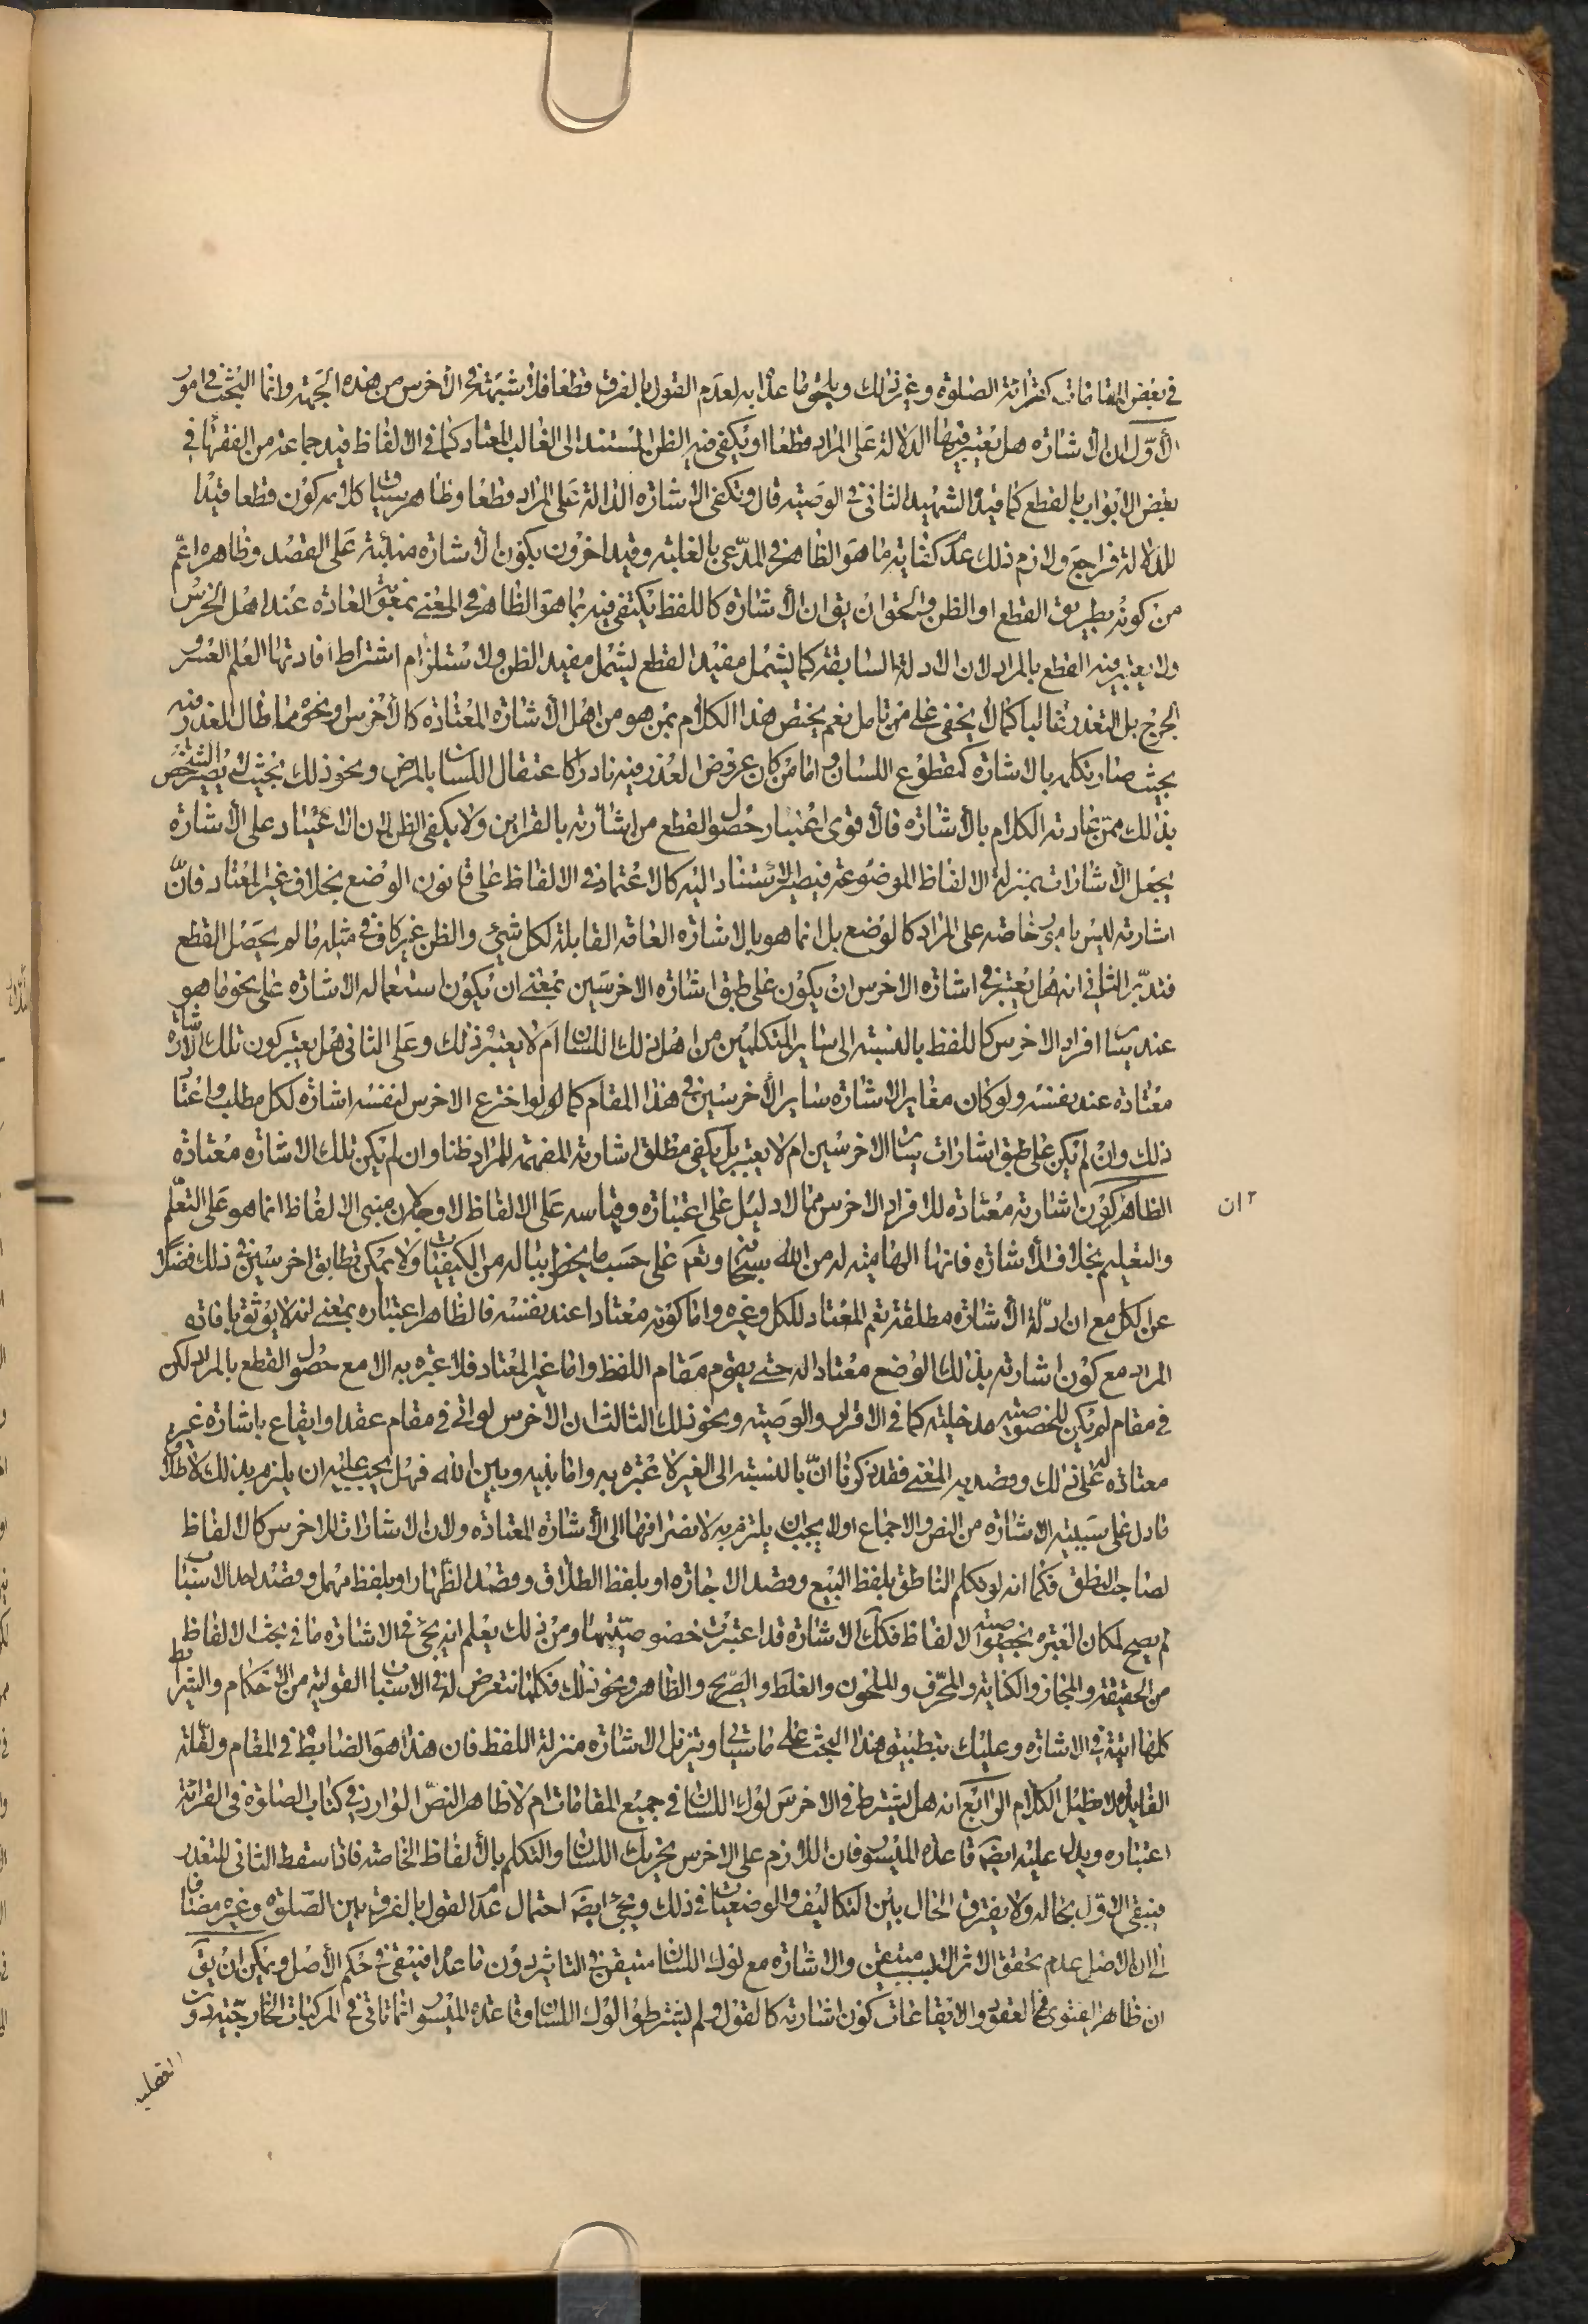 في بعض المقامات كقرائة الصلوة وغير ذلك ويلحق ما عدا به لعدم القول بالفرق قطعا فلا شبهة في الاخرس من هذه الجهة وانما البحث في امور
الاول ان الاشاره هل يعتبر فيها الدلالة على المراد قطعا او يكفي فيه الظن المستند الى الغالب المعتاد كما في الالفاظ قيد جماعة من الفقهاء في
بعض الابواب بالقطع كما قيد الشهيد الثاني في الوصية قال وتكفى الاشاره الدالة على المراد قطعا وظاهر سياق كلامه كون قطعا قيدا
للدلالة فراجع ولازم ذلك عدم كفاية ما هو الظاهر في المدعى بالغلبة وقيد اخرون بكون الاشاره منبئة على القصد وظاهره اعم
من كونه بطريق القطع او الظن والحق ان يق ان الاشاره كاللفظ يكتفى فيه بما هو الظاهر في المعنى بمعونة العادة عند اهل الخرس
ولا يعتبر فيه القطع بالمراد لان الادلة السابقة كما يشمل مفيد القطع يشمل مفيد الظن ولاستلزام اشتراط افادتها العلم العسر و
الحرج بل التعذر غالبا كما لا يخفى على من تامل نعم يختص هذا الكلام بمن هو من اهل الاشاره المعتاده كالاخرس ونحوه مما طال العذر فيه
بحيث صار تكلمه بالاشاره كمقطوع اللسان واما من كان عروض العذر فيه نادرا كاعتقال اللسان بالمرض ونحو ذلك بحيث لم يصر الشخص
بذلك ممن عادته الكلام بالاشاره فالاقوى اعتبار حصول القطع من اشارته بالقراين ولا يكفي الظن لان الاعتياد على الاشاره
يجعل الاشارات بمنزلة الالفاظ الموضوعة فيصير الاستناد اليه كالاعتماد في الالفاظ على قانون الوضع بخلاف غير المعتاد فان
اشارته ليس بامور خاصه على المراد كالوضع بل انما هو بالاشاره العامه القابلة لكل شيئ والظن غير كاف في مثله ما لم يحصل القطع
فتدبر الثاني انه هل يعتبر في اشاره الاخرس ان يكون على طبق اشاره الاخرسين بمعنى ان يكون استعماله الاشاره على نحو ما هو
عند سائر افراد الاخرس كاللفظ بالنسبة الى ساير المتكلمين من اهل ذلك اللسان ام لا يعتبر ذلك وعلى الثاني هل يعتبر كون تلك الاشارة
معتاده عند نفسه ولو كان مغاير الاشاره ساير الاخرسين في هذا المقام كما لو اخترع الاخرس لنفسه اشاره لكل مطلب واعتاد
ذلك وان لم يكن على طبق اشارات سائر الاخرسين ام لا يعتبر بل يكفي مطلق اشارته المفهمة للمراد ظنا وان لم يكن تلك الاشاره معتاده
الظاهر كون اشارته معتاده للافراد الاخرس مما لا دليل على اعتباره وقياسه على الالفاظ لا وجه لان مبنى الالفاظ انما هو على التعلم
٢ ان
والتعليم بخلاف الاشاره فانها الهامية له من الله سبحانه وتعم على حسب ما يخطر بباله من الكيفيات ولا يمكن تطابق اخرسين في ذلك فضلا
عن الكل مع ان ادلة الاشاره مطلقة تعم المعتاد للكل وغيره واما كونه معتادا عند نفسه فالظاهر اعتباره بمعنى انه لا يوثق بافاده
المراد مع كون اشارته بذلك الوضع معتاداله حتى يقوم مقام اللفظ واما غير المعتاد فلا عبره به الا مع حصول القطع بالمراد لكن
في مقام لم يكن للخصوصية مدخلية كما في الاقرار والوصية ونحو ذلك الثالث ان الاخرس لو اتى في مقام عقد او ايقاع باشارة غير
معتاده له على ذلك وقصد به المعنى فقد ذكرنا ان بالنسبة الى الغير لا عبره به واما بينه وبين الله فهل يجب عليه ان يلتزم بذلك لاطلاق
ما دل على سببية الاشاره من النص والاجماع او لا يجب ان يلتزم به لانصرافها الى الاشاره المعتاده ولان الاشارات للاخرس كالالفاظ
لصاحب النطق فكما انه لو تكلم الناطق بلفظ البيع وقصد الاجازه او بلفظ الطلاق وقصد الظهار او بلفظ مهمل وقصد احد الاسباب
لم يصح لمكان العبره بخصوصية الالفاظ فكك الاشارة قد اعتبرت خصوصيتها ومن ذلك يعلم انه يجئ في الاشاره ما في بحث الالفاظ
من الحقيقة والمجاز والكناية والمحرف والملحون والغلط والصريح والظاهر ونحو ذلك فكلما نتعرض له في الاسباب القولية من الاحكام والشرايط
كلها اتية في الاشاره وعليك بتطبيق هذا البحث على ما سياتي وتنزل الاشاره منزلة اللفظ فان هذا هو الضابط في المقام ولقلة
الفايدة لا نطيل الكلام الرابع انه هل يشترط في الاخرس لوك اللسان في جميع المقامات ام لا ظاهر النص الوارد في كتاب الصلوة في القرائة
اعتباره ويدل عليه ايضا قاعده الميسور فان اللازم على الاخرس تحريك اللسان والتكلم بالالفاظ الخاصه فاذا سقط الثاني للتعذر
فيبقى الاول بحاله ولا يفترق الحال بين التكاليف والوضعيات في ذلك ويجئ ايضا احتمال عدم القول بالفرق بين الصلوة وغيره مضافا
الى ان الاصل عدم تحقق الاثر الا بسبب متيقن والاشاره مع لوك اللسان متيقن في التاثير دون ما عدا فيبقى في حكم الاصل ويمكن ان يق
ان ظاهر الفتوى في العقود والايقاعات كون اشارته كالقول ولم يشترطوا لوك اللسان وقاعده الميسور انما تاتي في المركبات الخارجية دون
العقلية